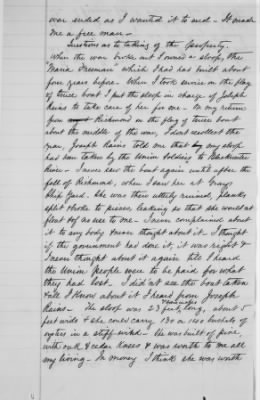 war ended as I wanted it to end - It made
me a free man -
Questions as to taking of the property.
When the war broke out I owned a sloop, the
"Maria Freeman" which I had has built about
four years before - When I took service on the flag
of truce boat I put the sloop in charge of Joseph
Rains to take care of her for me - On my return
from Richmond on the flag of truce boat
about the middle of the war, I dont recollect the
year, Joseph Rains told me that my sloop
has been taken by the Union Soldiers to Blackwater
River - I never saw the boat again until after the
fall of Richmond, when I saw her at Grays
Ship Yard. She was then utterly ruined, planks
split shot to pieces leaking so that she would not
float & of no use to me - I never complained about
it to any body never thought about it - I thought
if the government has done it, it was right &
I never thought about it again till I heard
the Union People were to be paid for what
they had lost. I did not see the boat taken
& all I know about it I heard from Joseph
Rains - The sloop was 23 feet long, about 5
feet wide & she could carry 130 or 150 bushels of
oysters in a stiff wind - She was built of pine
with oak & cedar knees & was worth to me all
my living - In money I think she was worth